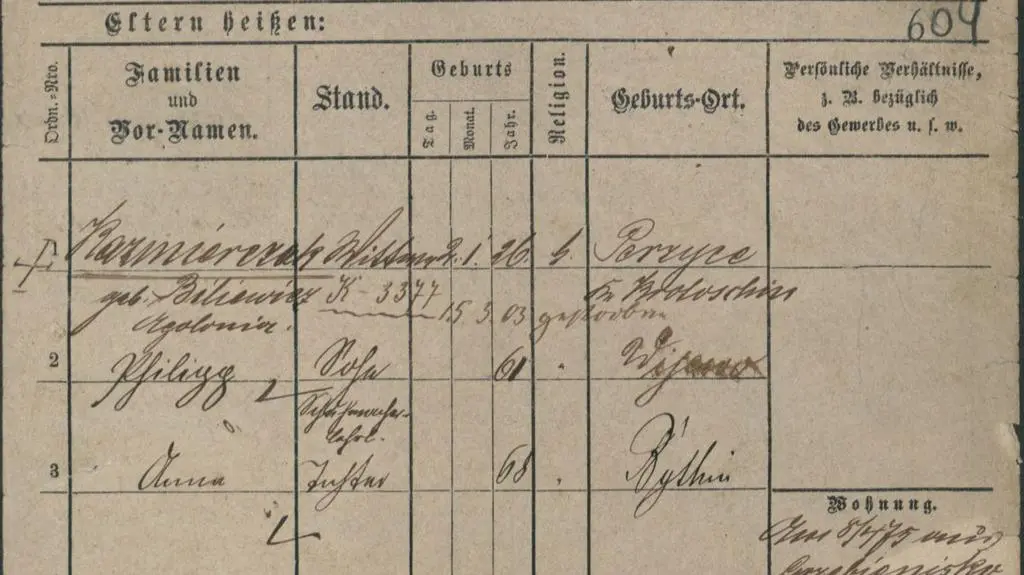 Eltern heißen:
604
Ordn.-Nro.
Familien
und
Vor-Namen.
Stand.
Geburts
Tag.
Monat.
Jahr.
Religion.
Geburts-Ort.
Persönliche Verhältnisse,
z. B. bezüglich
des Gewerbes u. s. w.
Kazmierczak Wittwe 2. 1. 26. k. Perzyce
geb. Biliewicz K-3377 Kr. Krotoschin
Apolonia. 15. 3. 03 gestorben
2 Philipp Sohn 61 "
Schuhmacher-
lehrl.
3 Anna Tochter 68 "
Wohnung.
Am 8/4 75 aus